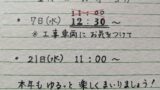 11:00
• 7日(水) 12:30〜
※工事車両にお気をつけて
• 21日(水) 11:00〜
本年もゆるっと楽しくまいりましょう!